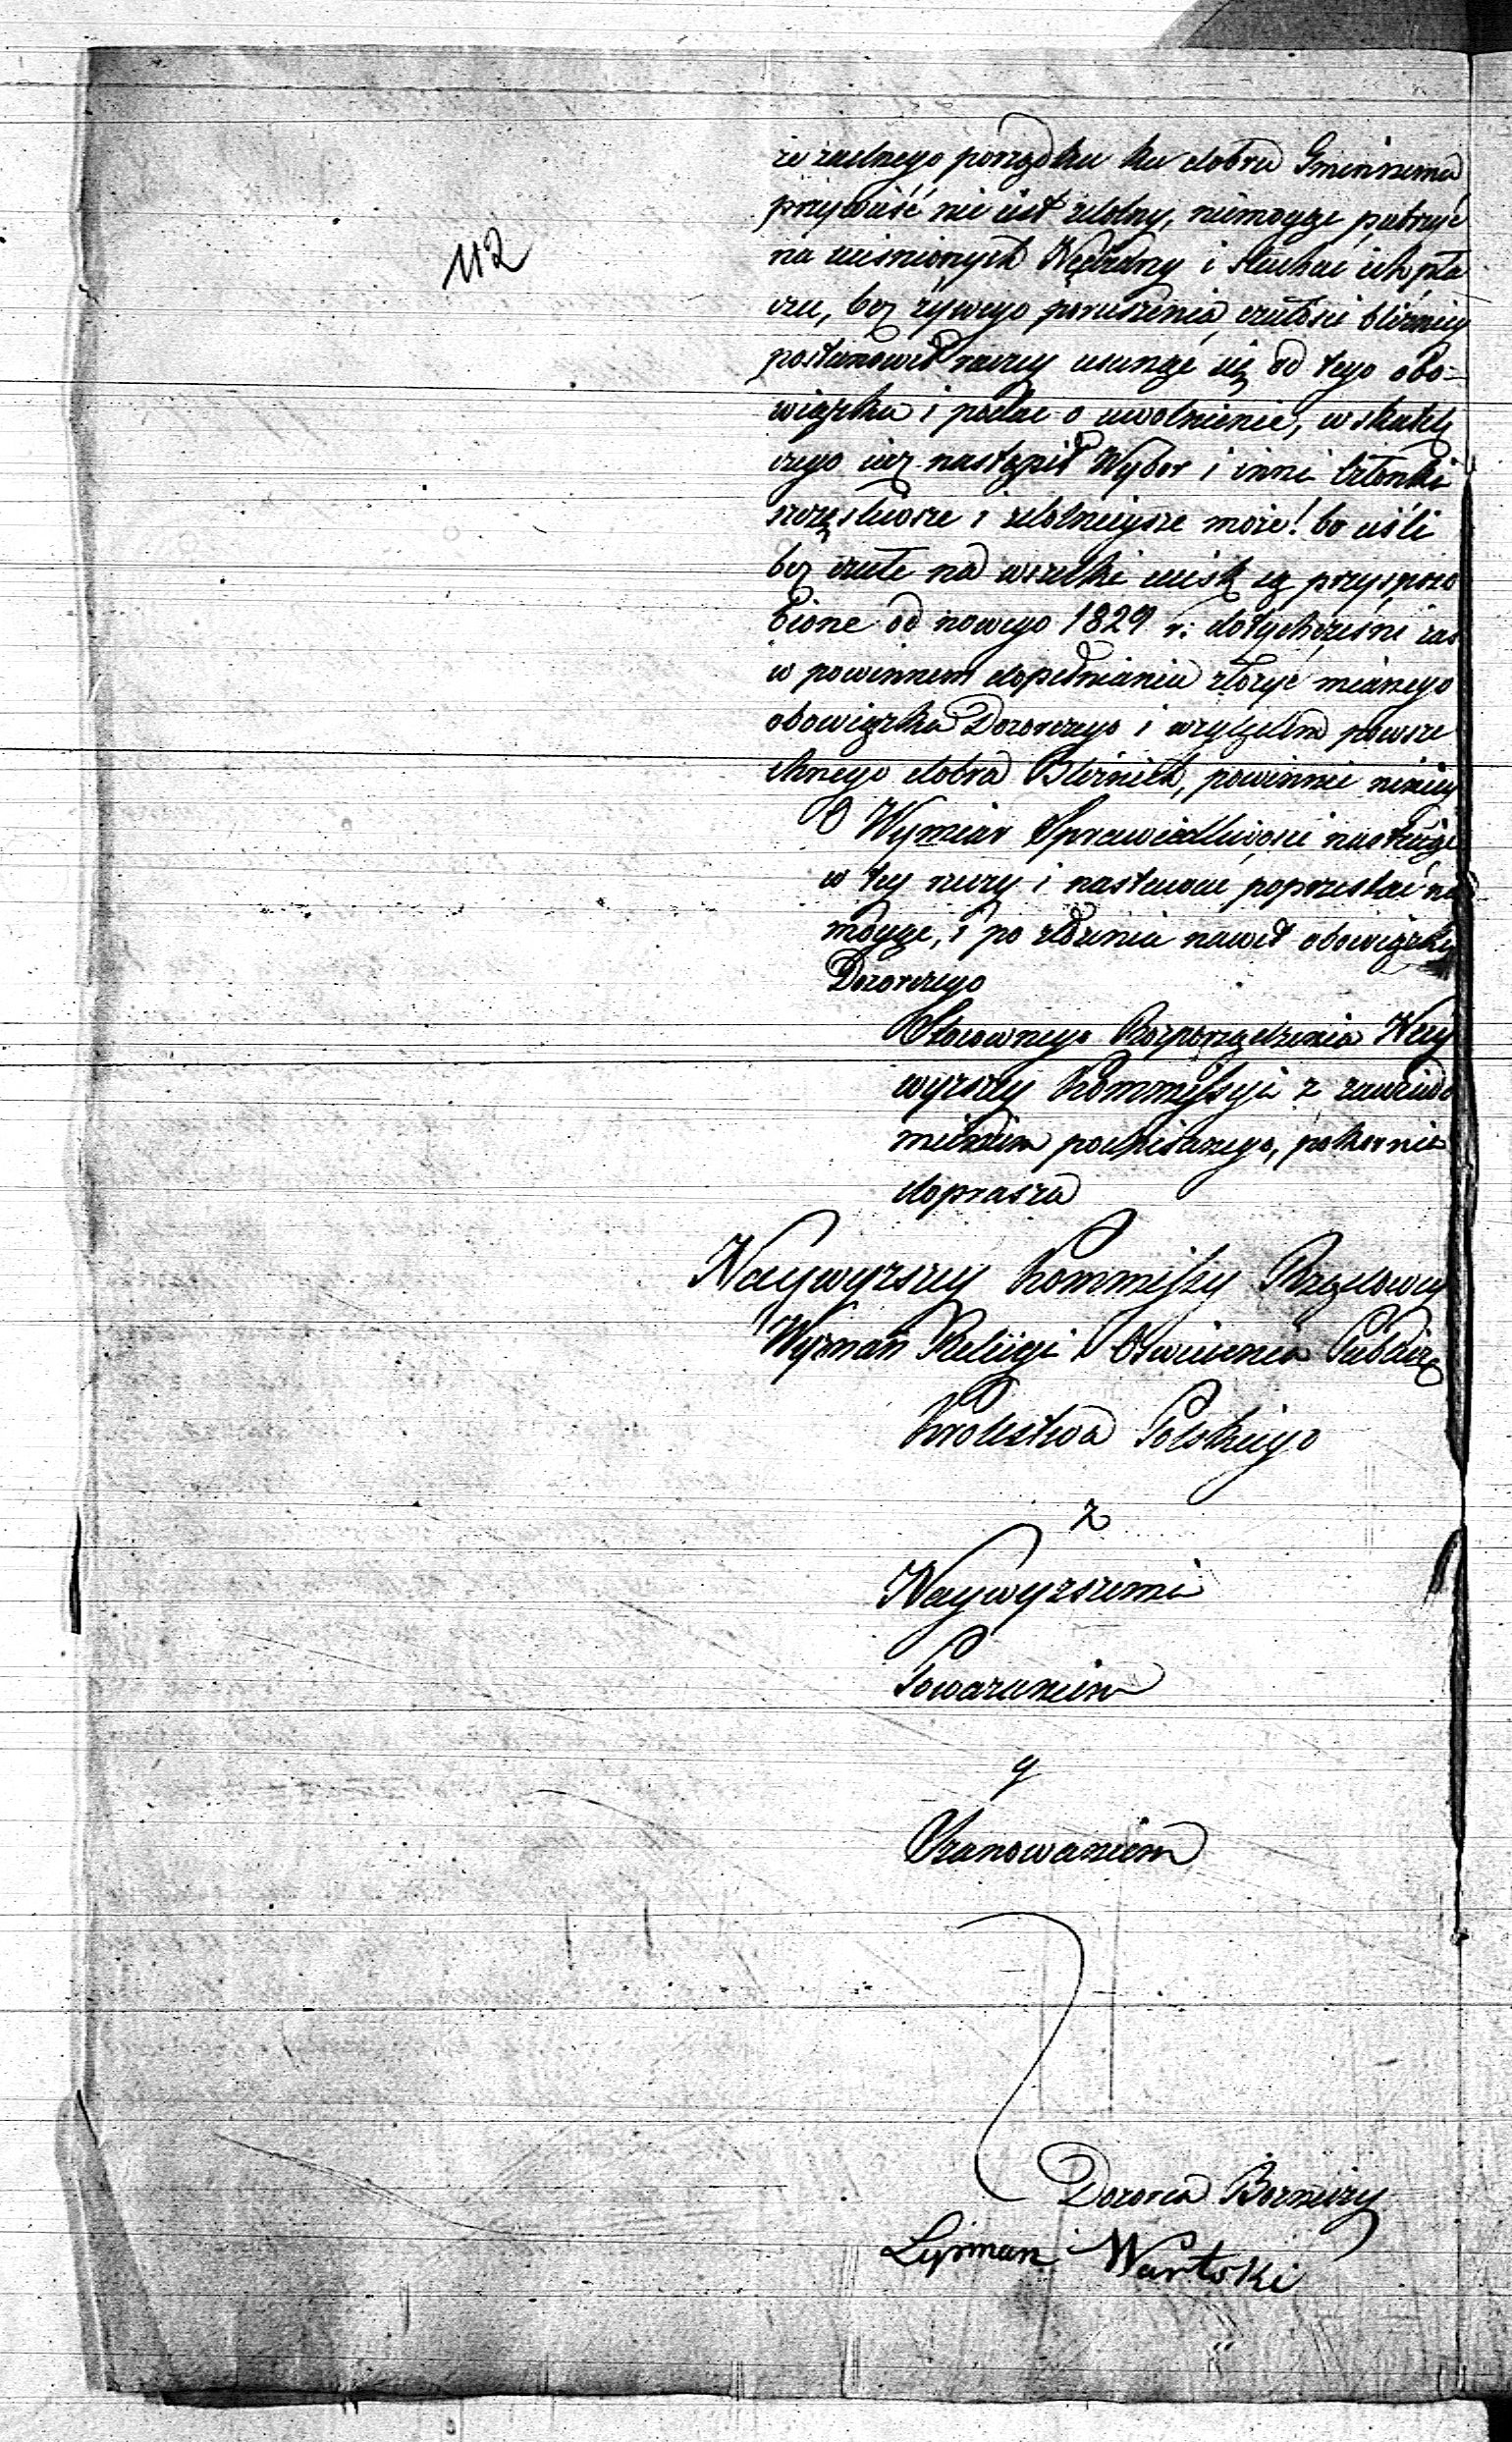 112
że żadnego porządku ku dobru Gminnemu
przywieść nie iest zdolny, niemogąc patrzyć
na uciśnionych Nędzarzy i słuchać ich pła
czu, bez żywego poruszenia czułości bliźniey
postanowił raczey usunąć się od tego obo=
wiązku i podać o uwolnienie, w skutek
czego iuż nastąpił Wybor i inni Członki
szczęśliwsze i zdolnieysze może! bo ieśli
bez czułe na wszelki ucisk są przysposo
bione od nowego 1829 r: dotychcześni zaś
w powinnem dopełnianiu złożyć mianego
obowiązku Dozorczego i względem powsze
chnego dobra Bliźnich, powinnie niniey
O Wymiar Sprawiedliwości nastaiąc
w tey rzeczy i nastawać poprzestać nie
mogąc, i po zdaniu nawet obowiązku
Dozorczego
Stosownego Rozporządzenia Nay
wyższey Kommissyi z zawiado
mieniem podpisanego, pokornie
doprasza
Naywyższey Kommissyi Rządowey
Wyznań Religii i Oświecenia Publiczn
Krolestwa Polskiego
z
Naywyższemi
Poważaniem
y
Szanowaniem
Dozorca Bożniczy
Lipman Wartski